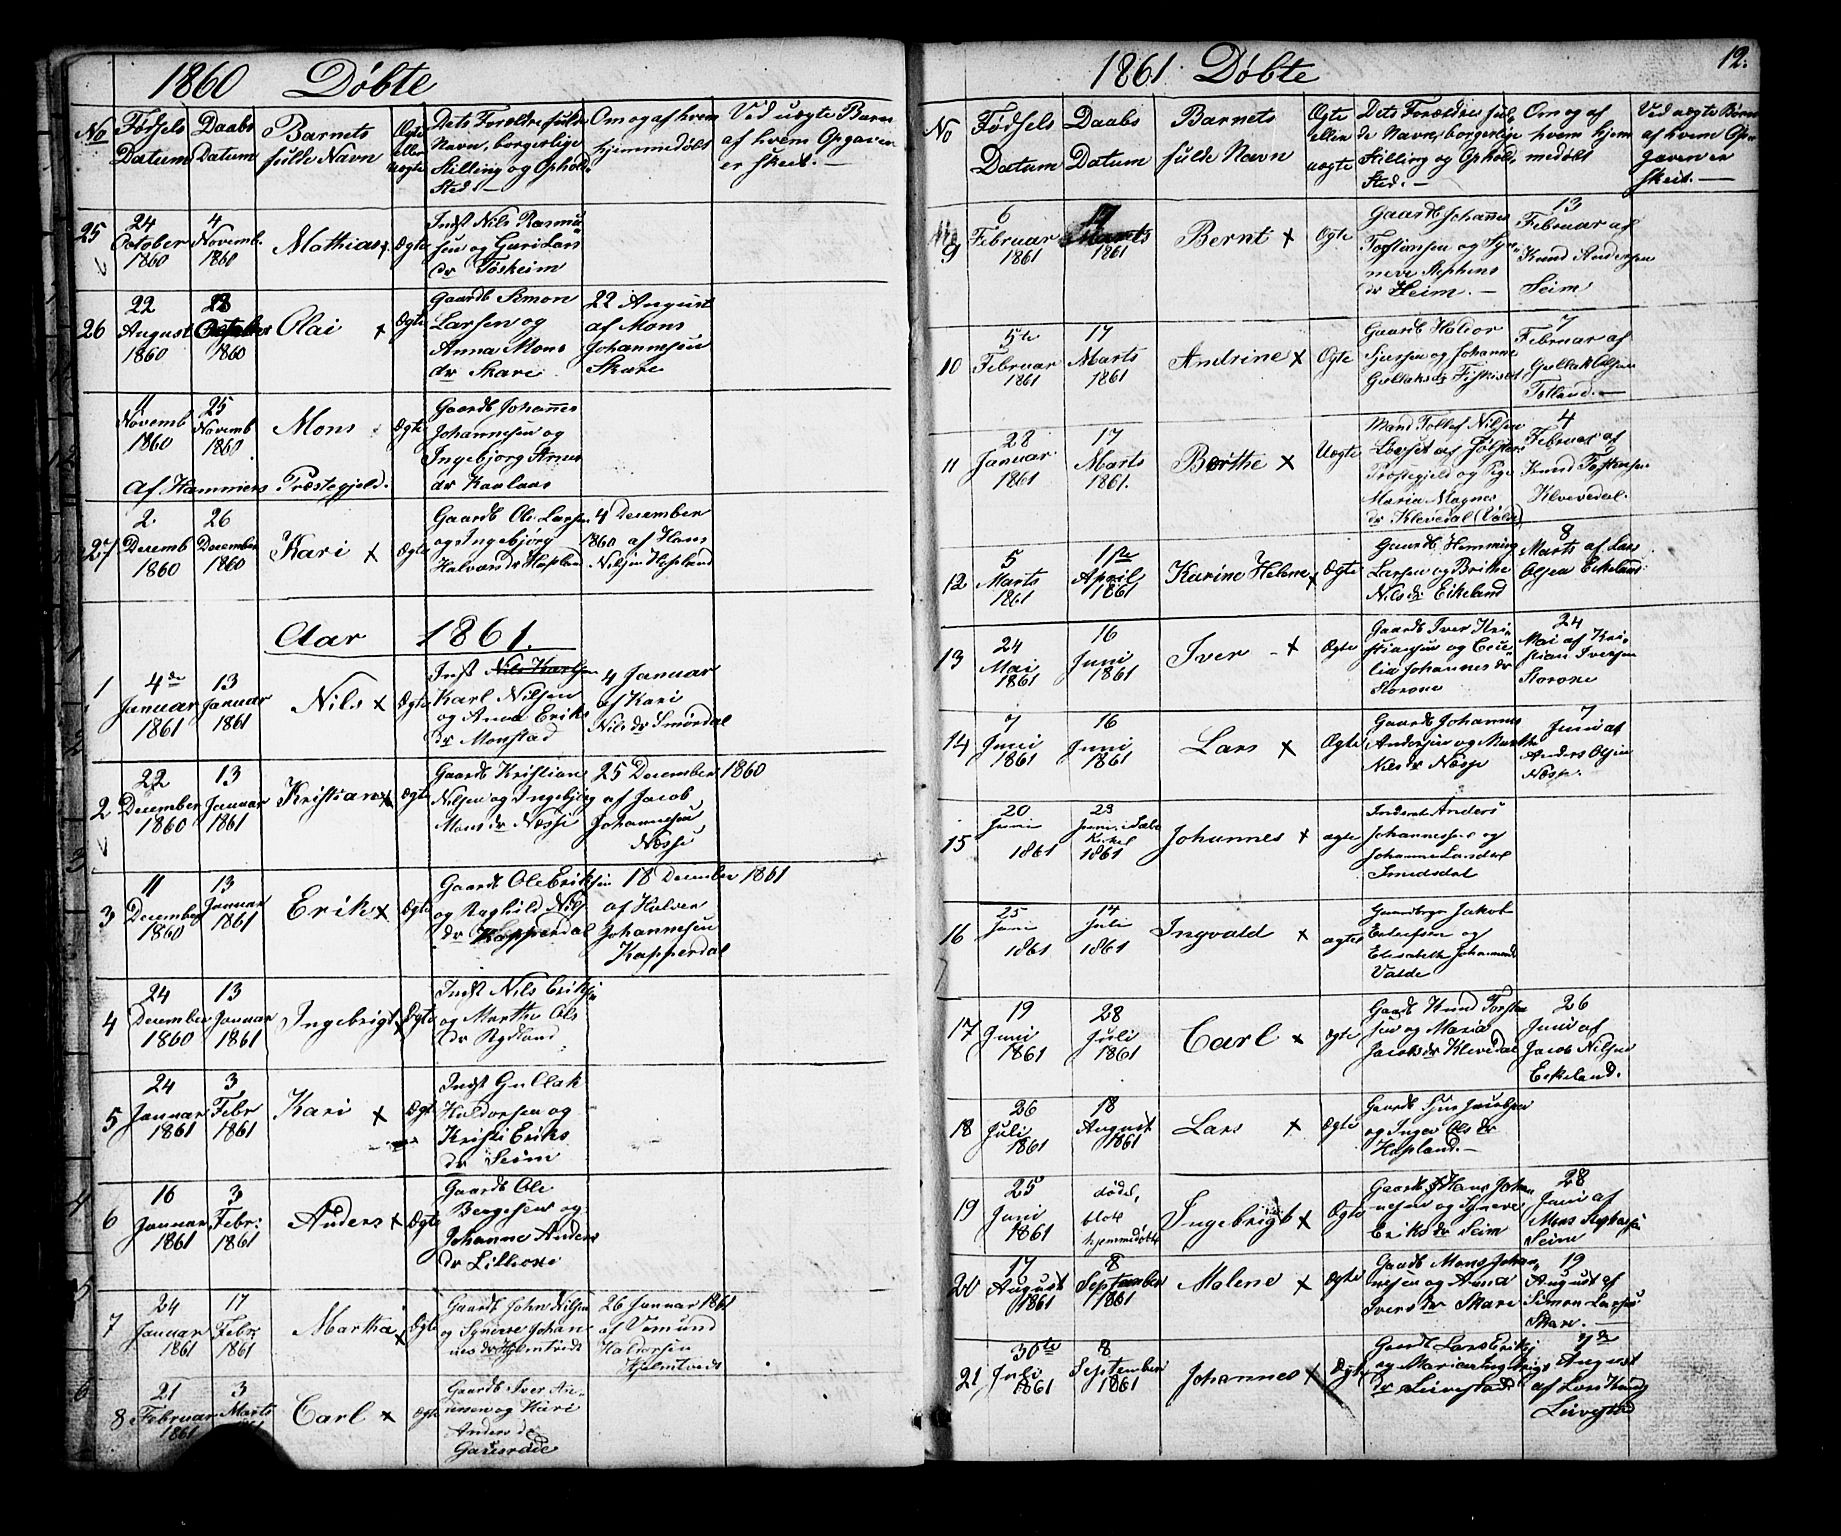 1860 Døbte
No
Fødsels Datum
Daabs Datum
Barnets fulde Navn
Ægte eller uægte
Dets Forældres fulde Navn, borgerlige Stilling og Opholds Sted. —
Om og af hvem hjemmedøbt
Ved uægte Børn af hvem Opgaven er skeet. —
25
24 October 1860
4 Novemb. 1860
Mathias x
Ægte
Indst Nils Rasmu
sen og Guri Lars
dr Tøsheim
26
22 August 1860
1860
Olai x
Ægte
Gaardb Simon
Larsen og
Anna Mons
dr Skare
22 August
af Mons
Johannesen
Skare
11 Novemb 1860
25 Novemb 1860
Mons
Ægte
Gaardb Johannes
Johannesen og
Ingebjorg Arnes
dr Kaalaas
af Hammers Præstegjeld.
27
2. Decemb 1860
26 December 1860
Kari x
Ægte
Gaardb Ole Larsen
og Ingebjörg
Halvards dr Hopland
4 December
1860 af Hans
Nilsen Hopland
Aar 1861.
1
4de Januar 1861
13 Januar 1861
Nils x
Ægte
Indst Nils Karlsen
Karl Nilsen
og Anna Eriks
dr Monstad
4 Januar
af Kari
Nils dr Smördal
2
22 December 1860
13 Januar 1861
Kristian x
Ægte
Gaardb Kristian
Nilsen og Ingebjörg
Mons dr Næsse
25 December 1860
af Jacob
Johannesen
Næsse
3
11 December 1860
13 Januar 1861
Erik x
Ægte
Gaardb Ole Eriksen
og Raghild Nils
dr Kapperdal
18 December 1861
af Halvor
Johannesen
Kapperdal
4
24 December 1860
13 Januar 1861
Ingebrigt x
Ægte
Indst Nils Eriksen
og Marthe Ols
dr Rydland
5
24 Januar 1861
3 Febr 1861
Kari x
Ægte
Indst Gullak
Haldorsen og
Kristi Eriks
dr Seim
6
16 Januar 1861
3 Febr: 1861
Anders x
Ægte
Gaardb Ole
Bergesen og
Johanne Anders
dr
7
24 Januar 1861
17 Febr. 1861
Martha x
Ægte
Gaardb John Nilsen
og Synneve Johan
nes dr Hjelmtvedt
26 Januar 1861
af Vemund
Haldorsen
Hjelmtvedt
8
21 Februar 1861
3 Marts
Carl x
Ægte
Gaardb Iver An
og Kari
Anders dr
1861 Døbte
12.
No
Fødsels Datum
Daabs Datum
Barnets fulde Navn
Ægte eller uægte
Dets Forældres ful
de Navn, borgerlige
Stilling og Opholds
Sted. —
Om og af
hvem hjem
medøbt
Ved uægte Børn
af hvem Op
gaven er
skeet. —
9
6 Februar 1861
17 Marts 1861
Bernt x
Ægte
Gaardb Johannes
Torstensen og Syn
neve Stephens
dr Heim. —
13
Februar af
Knud Andersen
Seim
10
5te Februar 1861
17 Marts 1861
Andrine x
Ægte
Gaardb Haldor
Sjursen og Johanne
Gullaks dr Fiskeset
7
Februar af
Gullak Olsen
Totland. —
11
28 Januar 1861
17 Marts 1861.
Berthe x
Uægte
Mand Tollef Nilsen
af Jølster
Præstegjeld og Pige
Maria Magnes
dr Klevedal
4
Februar af
Knud Torstensen
Klevedal.
12
5 Marts 1861
1ste April 1861
Karine Helene x
Ægte
Gaardb Hemming
Larsen og Brithe
Nils dr Eikeland
8
Marts af Lars
Olsen Eikeland
13
24 Mai 1861
16 Juni 1861
Iver x
Ægte
Gaardb Iver Kri
stiansen og Ceci
lia Johannes dr
Storoxe
24
Mai af Kri
stian Iversen
Storoxe
14
7 Juni 1861
16 Juni 1861
Lars x
Ægte
Gaardb Johannes
Andersen og Marthe
Nils dr Næsse
7
Juni af
Anders Olsen
Næsse.
15
20 Juni 1861
23 Juni i Kirke 1861
Johannes x
ægte
Inderst Anders
Johannessen og
Johanne Larsdat
Smedsdal
16
25 Juni 1861
14 Juli 1861
Ingvald x
ægte
Gaardbrgr Jakob
og
Elisabeth Johannesd
Valde
17
19 Juni 1861
28 Juli 1861
Carl x
Ægte
Gaardb Knud Torsten
sen og Maria
Jacobs dr Klevedal
26
Juni af
Jacob Nilsen
Eikeland.
18
26 Juli 1861
18 August 1861
Lars x
Ægte
Gaardb Sjur Jacobsen
og Inger Ols dr
Hopland. —
19
25 Juni 1861
døde,
blot
hjemmedøbt
Ingebrigt x
Ægte
Gaardb Hans Johan
nesen og Synneve
Eriks dr Seim
28
Juni af
Mons
Seim
20
17 August 1861
8 September 1861
Malene x
Ægte
Gaardb Mons Johan
nesen og Anna
Ivers dr Skare
19
August af
Simon Larsen
Skare. —
21
30te Juli 1861
8 September 1861
Johannes x
Ægte
Gaardb Lars Eriksen
og Maria Ingebrigts
dr
7de
August
af Lars